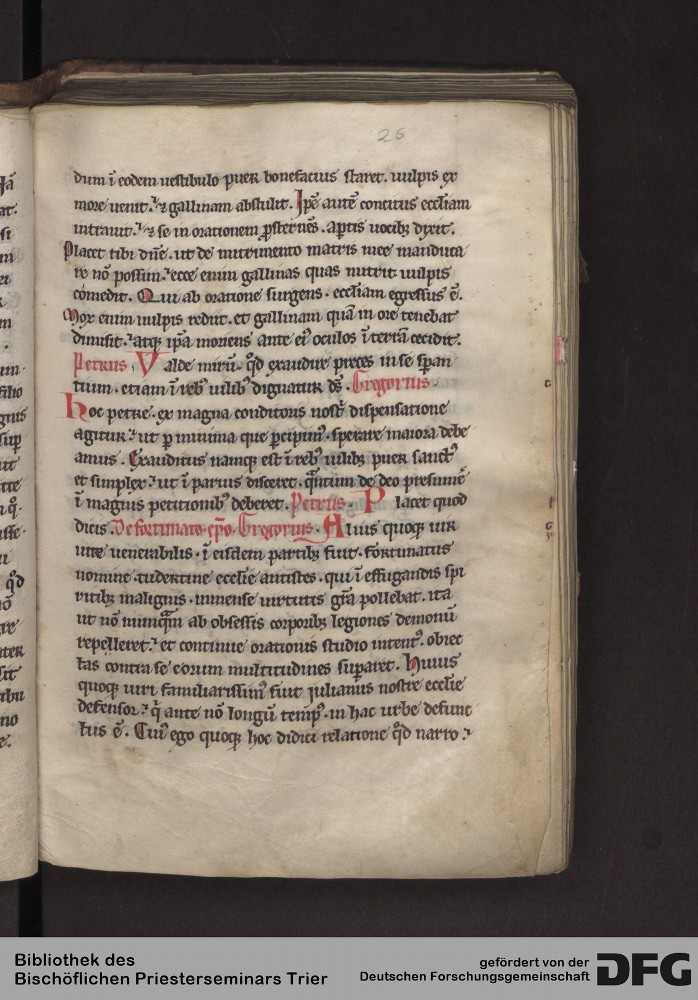 26
dum ī eodem uestibulo puer bonefacius staret. uulpis ex
more uenit. ⁊ gallinam abstulit. Ip̄e autē concitus eccl̄iam
intrauit. ⁊ se in orationem ꝓsternēs. aꝑtis uocibꝫ dixit.
Placet tibi dn̄e. ut de nutrimento matris mee manduca
re nō possim. ecce enim gallinas quas nutrit uulpis
cōmedit. Qui ab oratione surgens. eccl̄iam egressus ē.
Mox enim uulpis rediit. et gallinam quā in ore tenebat
dimisit. atqꝫ ip̄a moriens ante eiꝰ oculos ī terrā cecidit.
Petrus. Valde mirū. qͦd exaudire preces in se sꝑan
tium. etiam ī rebꝰ uilibꝰ dignatur dс̄. Gregorius.
Hoc petre. ex magna conditoris nostͥ dispensatione
agitur. ut ꝑ minima que ꝑcipimꝰ. sperare maiora debe
amus. Exauditus namqꝫ est ī rebꝰ uilibꝫ puer sanctꝰ
et simplex. ut ī paruis disceret. qͣntum de deo presumē
ī magnis petitionibꝰ deberet. Petrus. Placet quod
dicis. De fortunato. ep̄o. Gregorius. Alius quoqꝫ uir
uite uenerabilis. ī eisdem partibꝫ fuit. fortunatus
nomine. tudertine eccl̄ie antistes. qui ī effugandis spi
ritibꝫ malignis. inmense uirtutis gr̄a pollebat. ita
ut nō nunqͣm ab obsessis corporibꝫ legiones demonū
repelleret. et continue orationis studio intentꝰ. obiec
tas contra se eorum multitudines suꝑaret. Huius
quoqꝫ uiri familiarissimꝰ fuit iulianus nostre eccl̄ie
defensor. qͥ ante nō longū tempꝰ. in hac urbe defunc
tus ē. Cuiꝰ ego quoqꝫ hoc didici relatione qͦd narro.
Bibliothek des
Bischöflichen Priesterseminars Trier
gefördert von der
Deutschen Forschungsgemeinschaft DFG